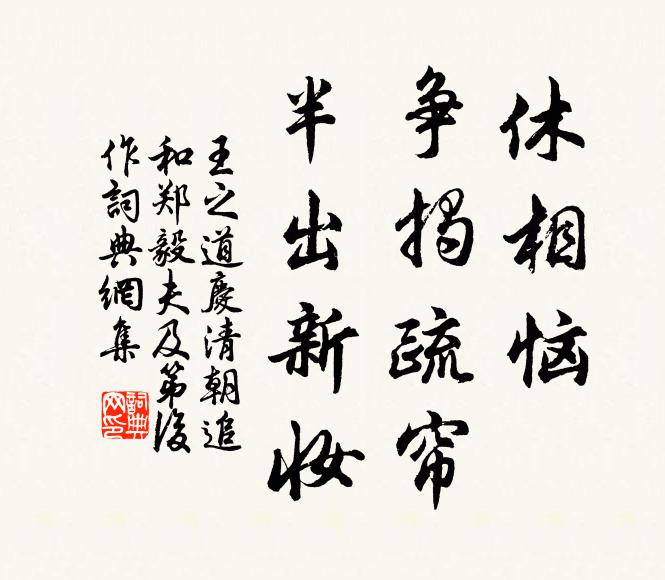 休相恼
争揭疏帘
半出新妆
王之道慶清朝追
和郑毅夫及第後
作詞典網集
詞典网印